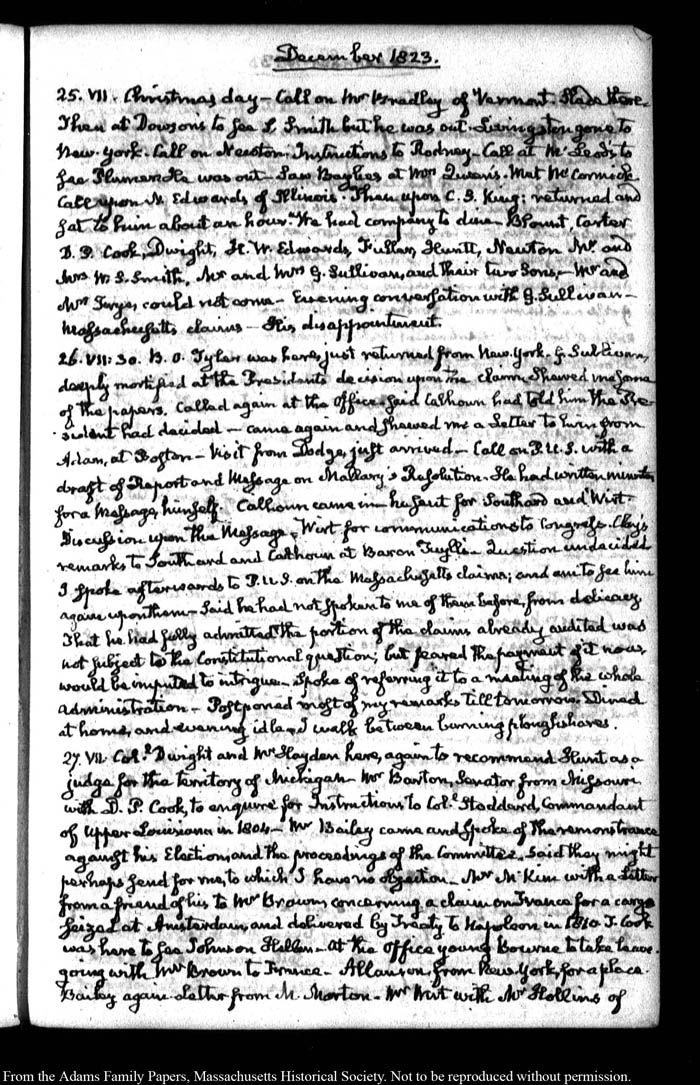 December 1823.
25. VII. Christmas day – Call on Mr Bradley of Vermont. Slade there.
Then at Dowson's to see S. Smith but he was out. Livingston gone to
New-York. Call on Newton. Instructions to Rodney. Call at McLeod's to
see Plumer. He was out – Saw Baylies at Mrs Queen's. Met McCormick
Call upon N. Edwards of Illinois. Then upon C. B. King: returned and
sat to him about an hour. We had company to dine – Blount, Carter
D. P. Cook, Dwight, H. W. Edwards, Fuller, Newton Mr. and
Mrs W. S. Smith, Mr and Mrs G. Sullivan, and their two Sons, – Mr and
Mrs Frye, could not come – Evening conversation with G. Sullivan –
Massachusetts claims – His disappointment.
26. VII: 30. B. O. Tyler was here, just returned from New-York. G. Sullivan,
deeply mortified at the President's decision upon the claim, Shewed me some
of the papers. Called again at the Office. Said Calhoun had told him the Pre-
sident had decided – came again and shewed me a Letter to him from
at Boston – Visit from Dodge, just arrived – Call on P. U. S. with a
draft of Report and Message on Mallary's Resolution. He had written minutes
for a Message, himself. Calhoun came in – he sent for Southard and Wirt.
Discussion upon the Message. Wirt for communications to Congress. Clay's
remarks to Southard and Calhoun at Baron Tuyll's. Question undecided
I spoke afterwards to P. U. S. on the Massachusetts claims; and am to see him
again upon them – Said he had not spoken to me of them before, from delicacy
That he had fully admitted the portion of the claims already audited was
not subject to the Constitutional question; but feared the payment of it now,
would be imputed to intrigue – Spoke of referring it to a meeting of the whole
administration – Postponed most of my remarks till tomorrow. Dined
at home, and evening idle. I walk between burning ploughshares.
27. VII. Coll. Dwight and Mr Hayden here, again to recommend Hunt as a
judge for the territory of Michigan – Mr Barton, Senator from Missouri
with D. P. Cook, to enquire for Instructions to Coll. Stoddard, Commandant
of Upper Louisiana in 1804 – Mr Bailey came and spoke of the remonstrance
against his Election, and the proceedings of the Committee. Said they might
perhaps send for me, to which I have no objection – Mr McKim with a Letter
from a friend of his to Mr Brown, concerning a claim on France for a cargo
seized at Amsterdam, and delivered by Treaty to Napoleon in 1810. J. Cook
was here to see Johnson Hellen – At the Office young Bourne to take leave.
going with Mr Brown to France – Allanson, from New York, for a place.
Bailey again. Letter from M. Morton – Mr Wirt with Mr Hollins of
From the Adams Family Papers, Massachusetts Historical Society. Not to be reproduced without permission.